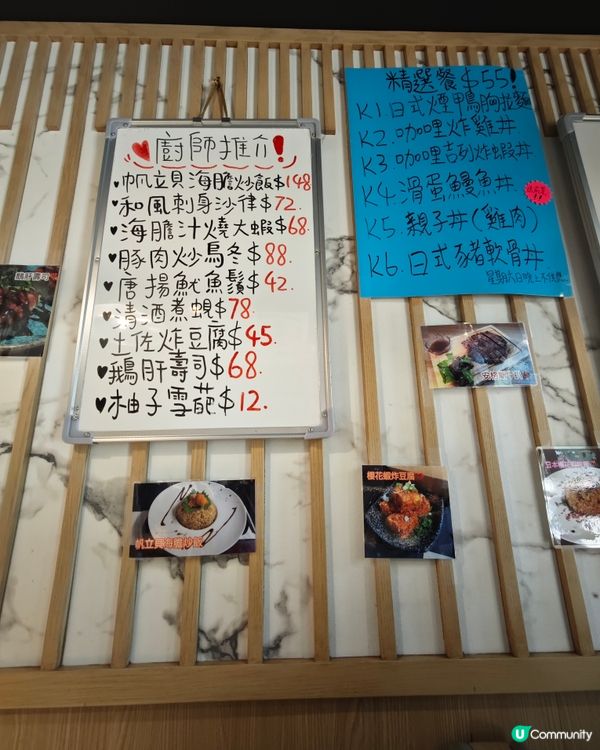 廚師推介!
帆立貝海膽炒飯$148
和風刺身沙律$72.
海膽汁燒大蝦$68.
豚肉炒烏冬$88.
唐揚魷魚鬚$42.
清酒煮蜆$78.
土佐炸豆腐$45.
鵝肝壽司$68.
柚子雪葩$12.
精選餐$55!
K1.日式煙鴨胸拉麵
K2.咖哩炸雞丼
K3.咖哩吉列炸蝦丼
K4.滑蛋鰻魚丼
K5.親子丼(雞肉)
K6.日式豬軟骨丼
櫻花蝦炸豆腐
帆立貝海膽炒飯
U Community